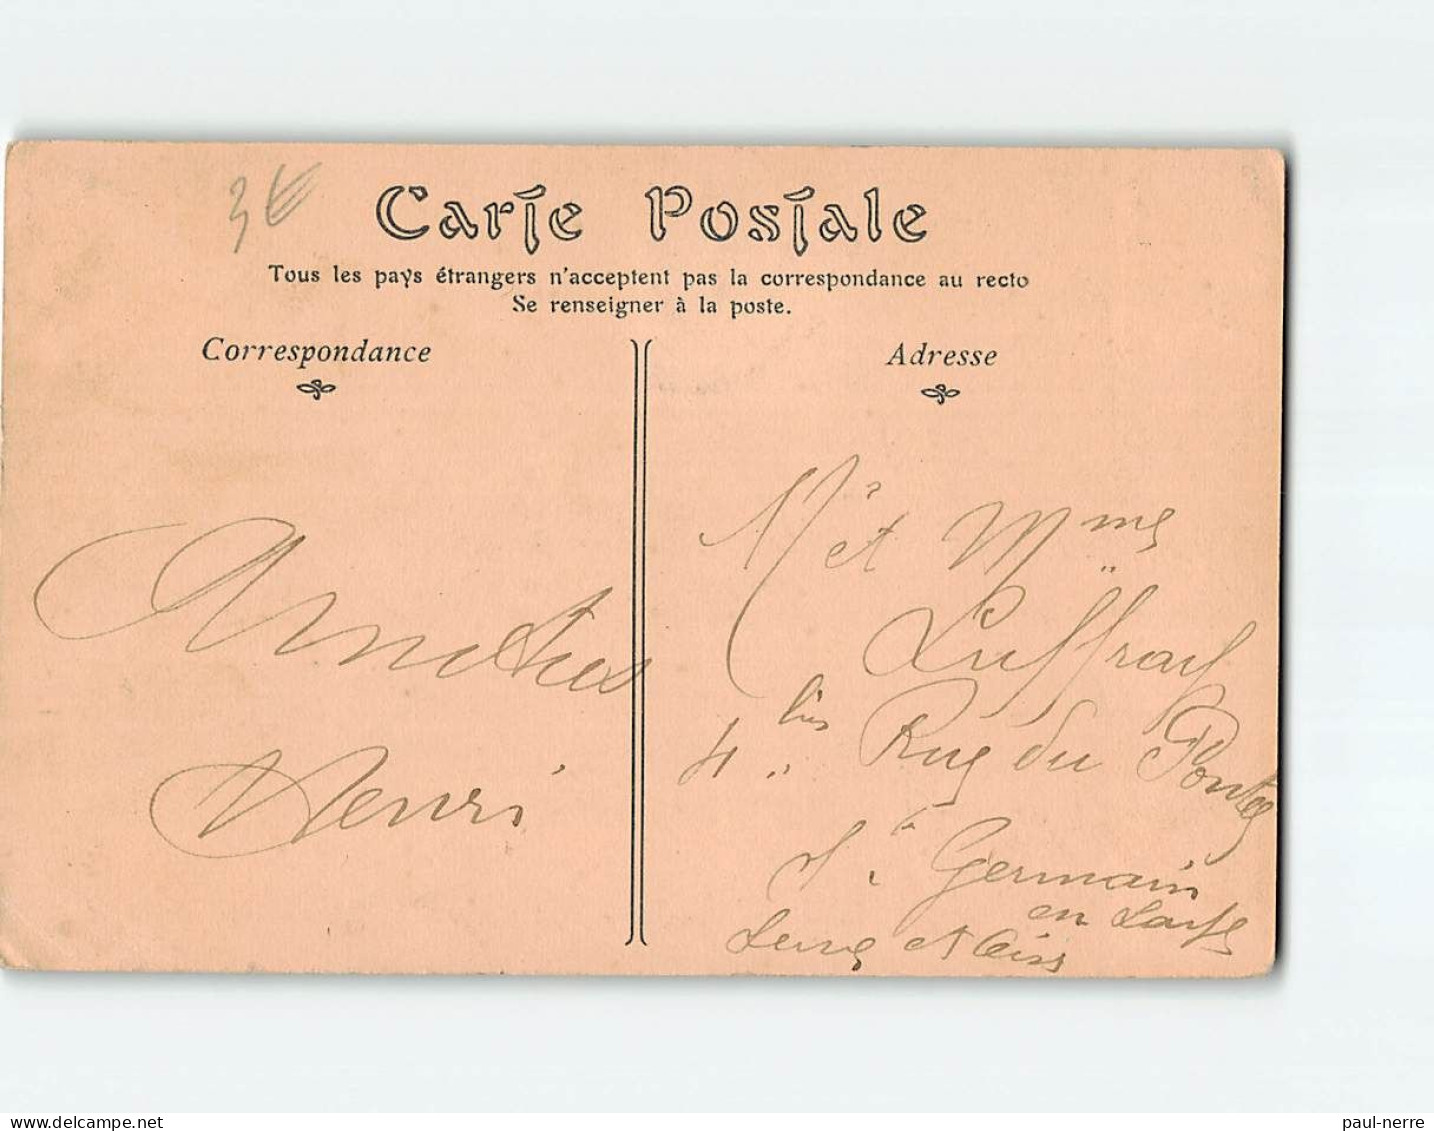 3€
Carte Postale
Tous les pays étrangers n'acceptent pas la correspondance au recto
Se renseigner à la poste.
Correspondance
Adresse
Amitiés
Henri
Mr et Mme
4 bis Rue du
St Germain
en Laye
Seine et Oise
paul-nerre